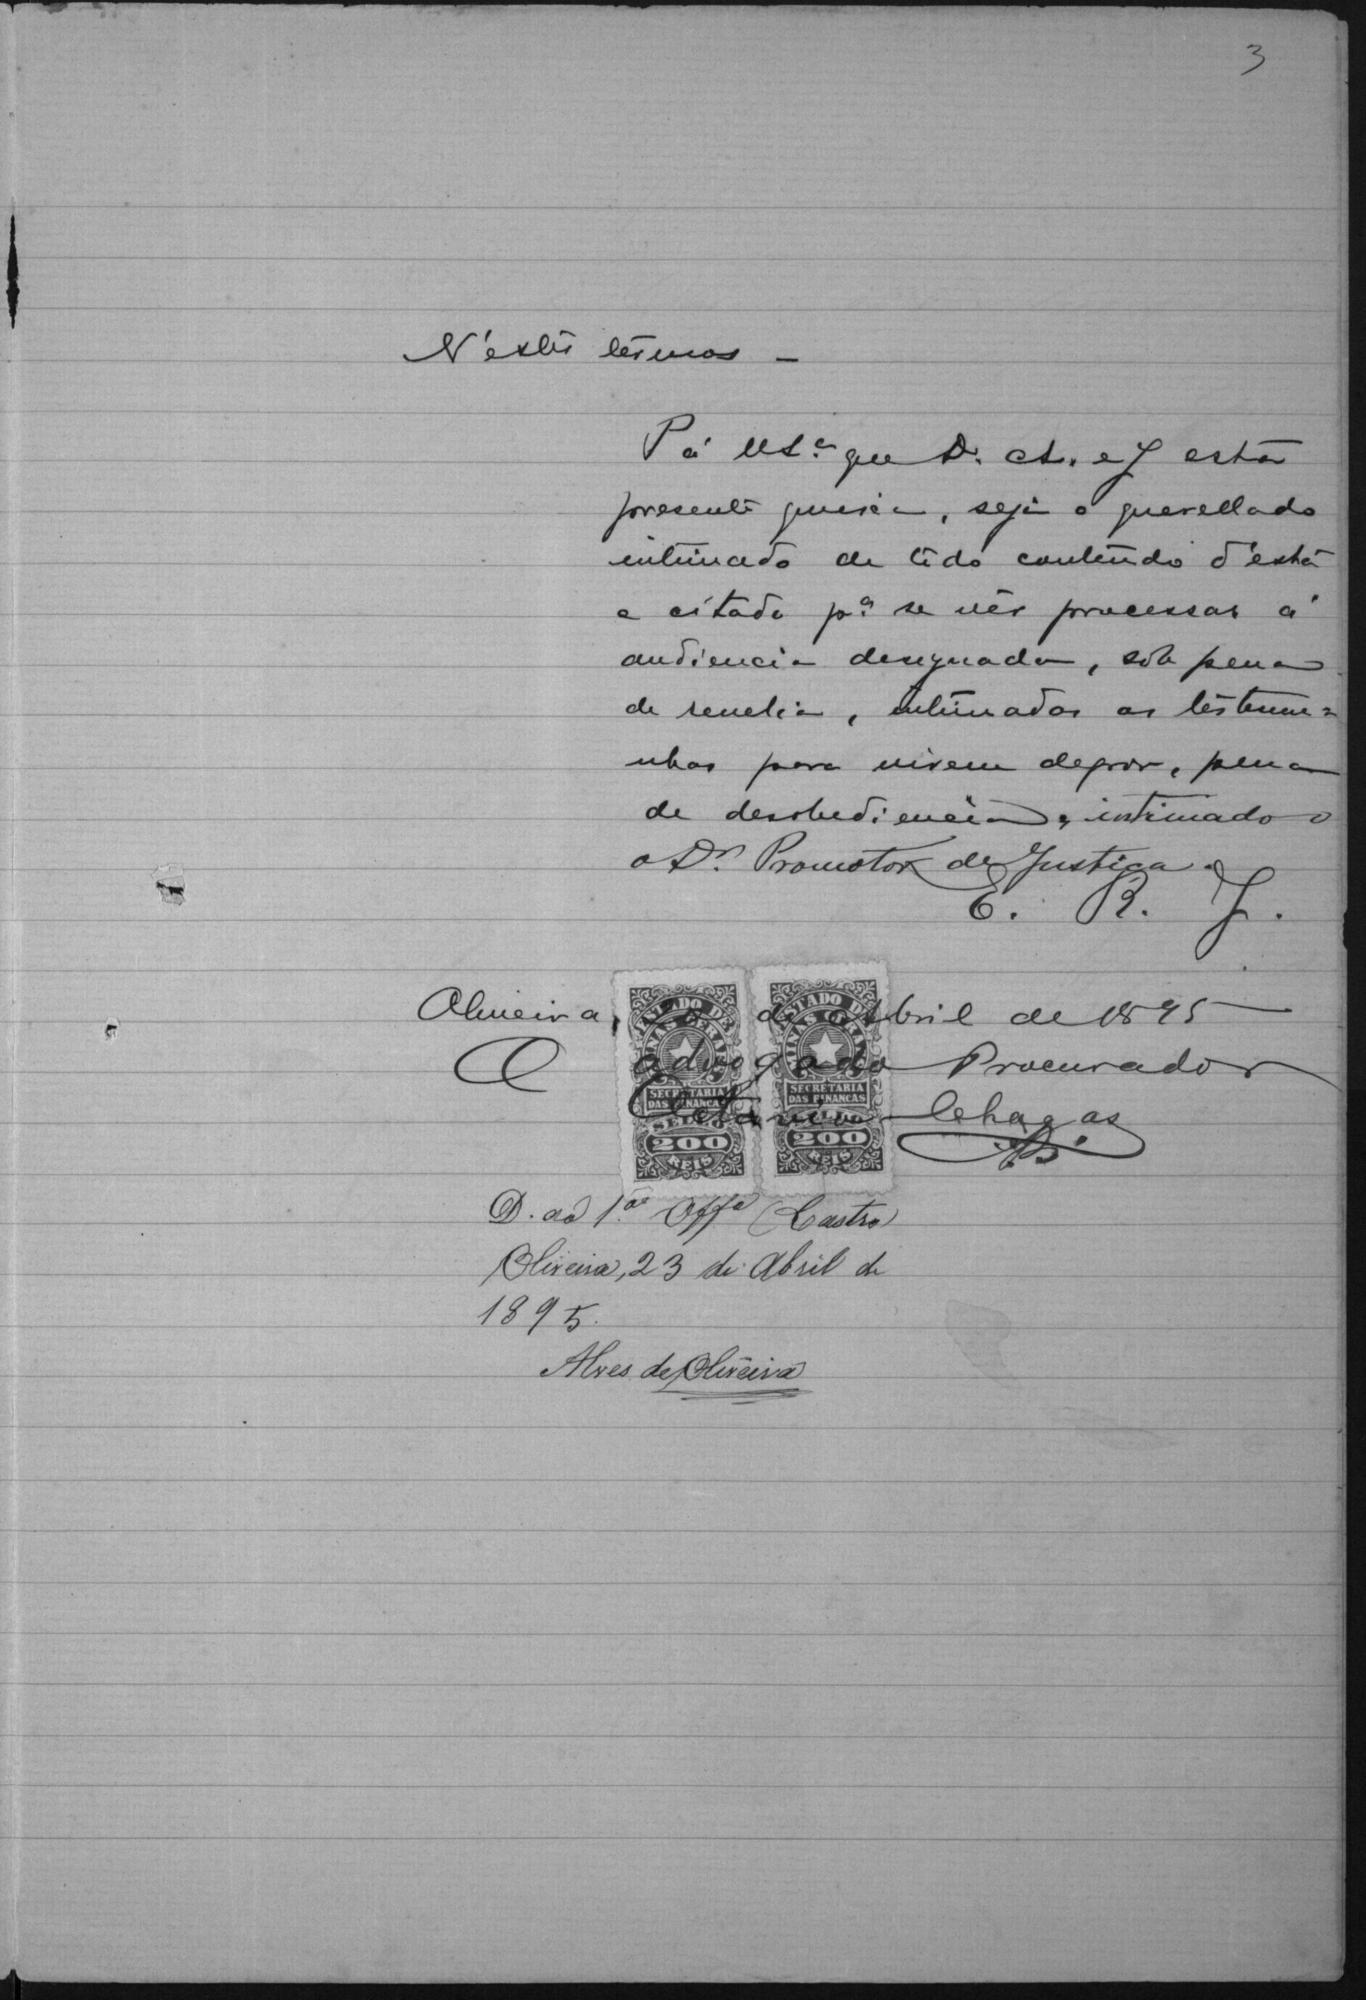 3
N'estes termos —
P. á V. S.ª que D. A. e J. esta
presente queixa, seja o querellado
intimado de tôdo contendo d'esta
e citado p.ª se vêr processar á
audiencia designada, sob pena
de revelia, intimados as testemu=
nhas para virem depôr, pena
de desobediencia, intimado
o Dr. Promotor de Justiça.
E. R. J.
Oliveira, de Abril de 1895
O advogado Procurador
Chagas
ESTADO DE MINAS GERAES
SECRETARIA DAS FINANCAS
SELLO
200
REIS
ESTADO DE MINAS GERAES
SECRETARIA DAS FINANCAS
SELLO
200
REIS
D. ao 1.º Off.º Castro
Oliveira, 23 de Abril de
1895.
Alves de Oliveira